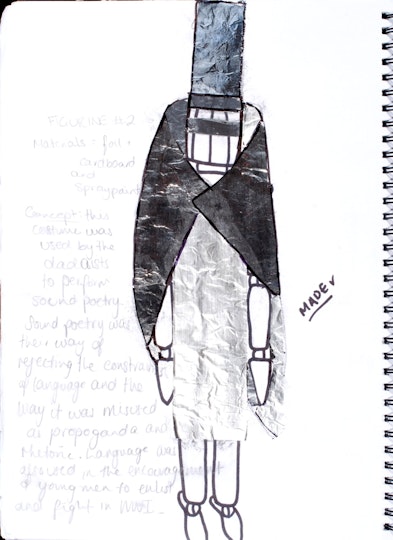 FIGURINE #2
Materials = foil +
cardboard
and
Spraypaint
Concept: this
costume was
used by the
dadaists
to perform
sound poetry.
Sound poetry was
their way of
rejecting the constraints
of language and the
way it was misused
as propoganda and
rhetoric. Language was
in the encouragement
of young men to enlist
and fight in WWI.
MADE